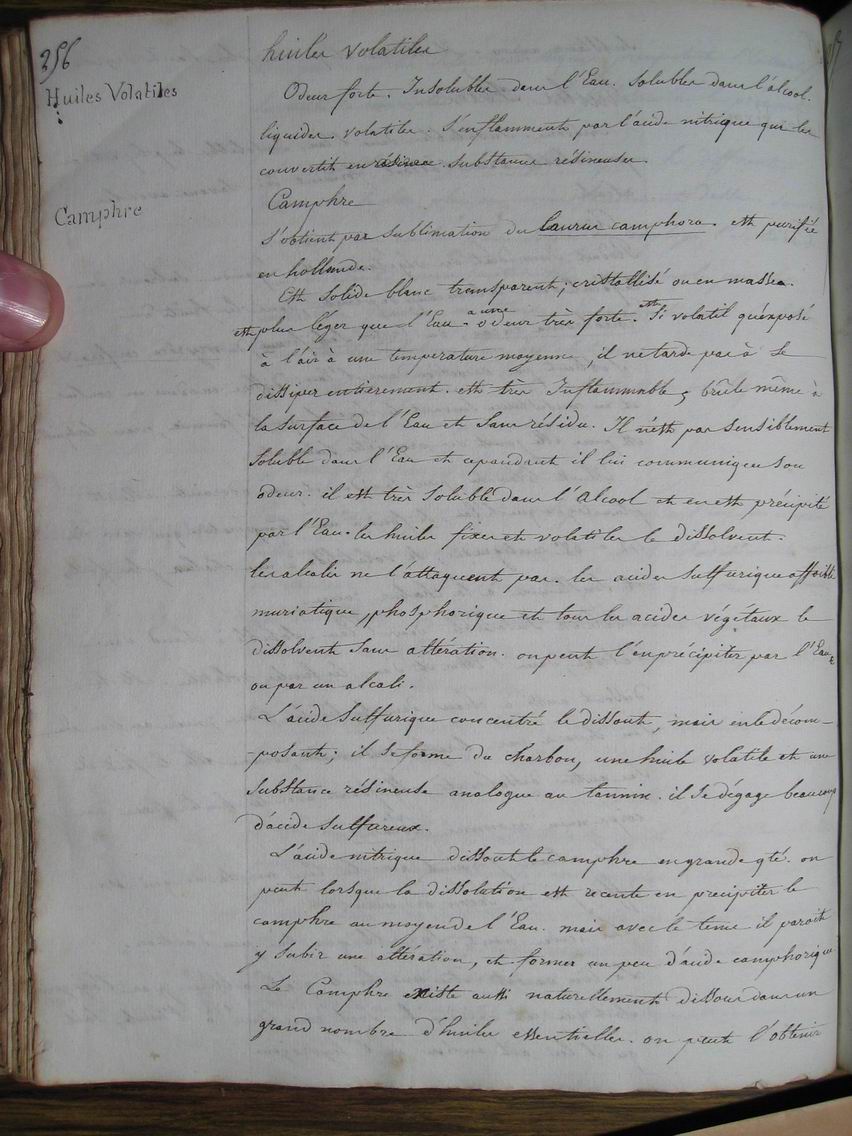 256
huiles volatiles
Huiles Volatiles
Odeur forte. Insolubles dans l'Eau. Solubles dans l'alcool.
liquides. volatiles. S'enflamment par l'acide nitrique qui les
convertit en résines substances résineuses.
Camphre
Camphre
S'obtient par Sublimation du laurus camphora. est purifié
en hollande.
Est Solide blanc transparent, cristallisé ou en masses.
est plus léger que l'Eau. a une odeur très forte. est Si volatil qu'exposé
à l'air à une température moyenne, il ne tarde pas à Se
dissiper entierement. est très Inflammable, brûle même à
la surface de l'Eau et Sans résidu. Il n'est pas Sensiblement
Soluble dans l'Eau et cependant il lui communique Son
odeur. il est très Soluble dans l'Alcool et en est précipité
par l'Eau. les huiles fixes et volatiles le dissolvent.
les alcalis ne l'attaquent pas. les acides Sulfurique affaibli
muriatique, phosphorique et tous les acides végétaux le
dissolvent Sans altération. on peut l'en précipiter par l'Eau
ou par un alcali.
L'acide Sulfurique concentré le dissout, mais en le décom-
-posant; il Se forme du charbon, une huile volatile et une
Substance résineuse analogue au tannin. il Se dégage beaucoup
d'acide Sulfureux.
L'acide nitrique dissout le camphre en grande qté. on
peut lorsque la dissolution est recente en precipiter le
camphre au moyen de l'Eau. mais avec le tems il paroit
y Subir une altération, et former un peu d'acide camphorique
Le Camphre existe aussi naturellement dissous dans un
grand nombre d'huiles essentielles. on peut l'obtenir